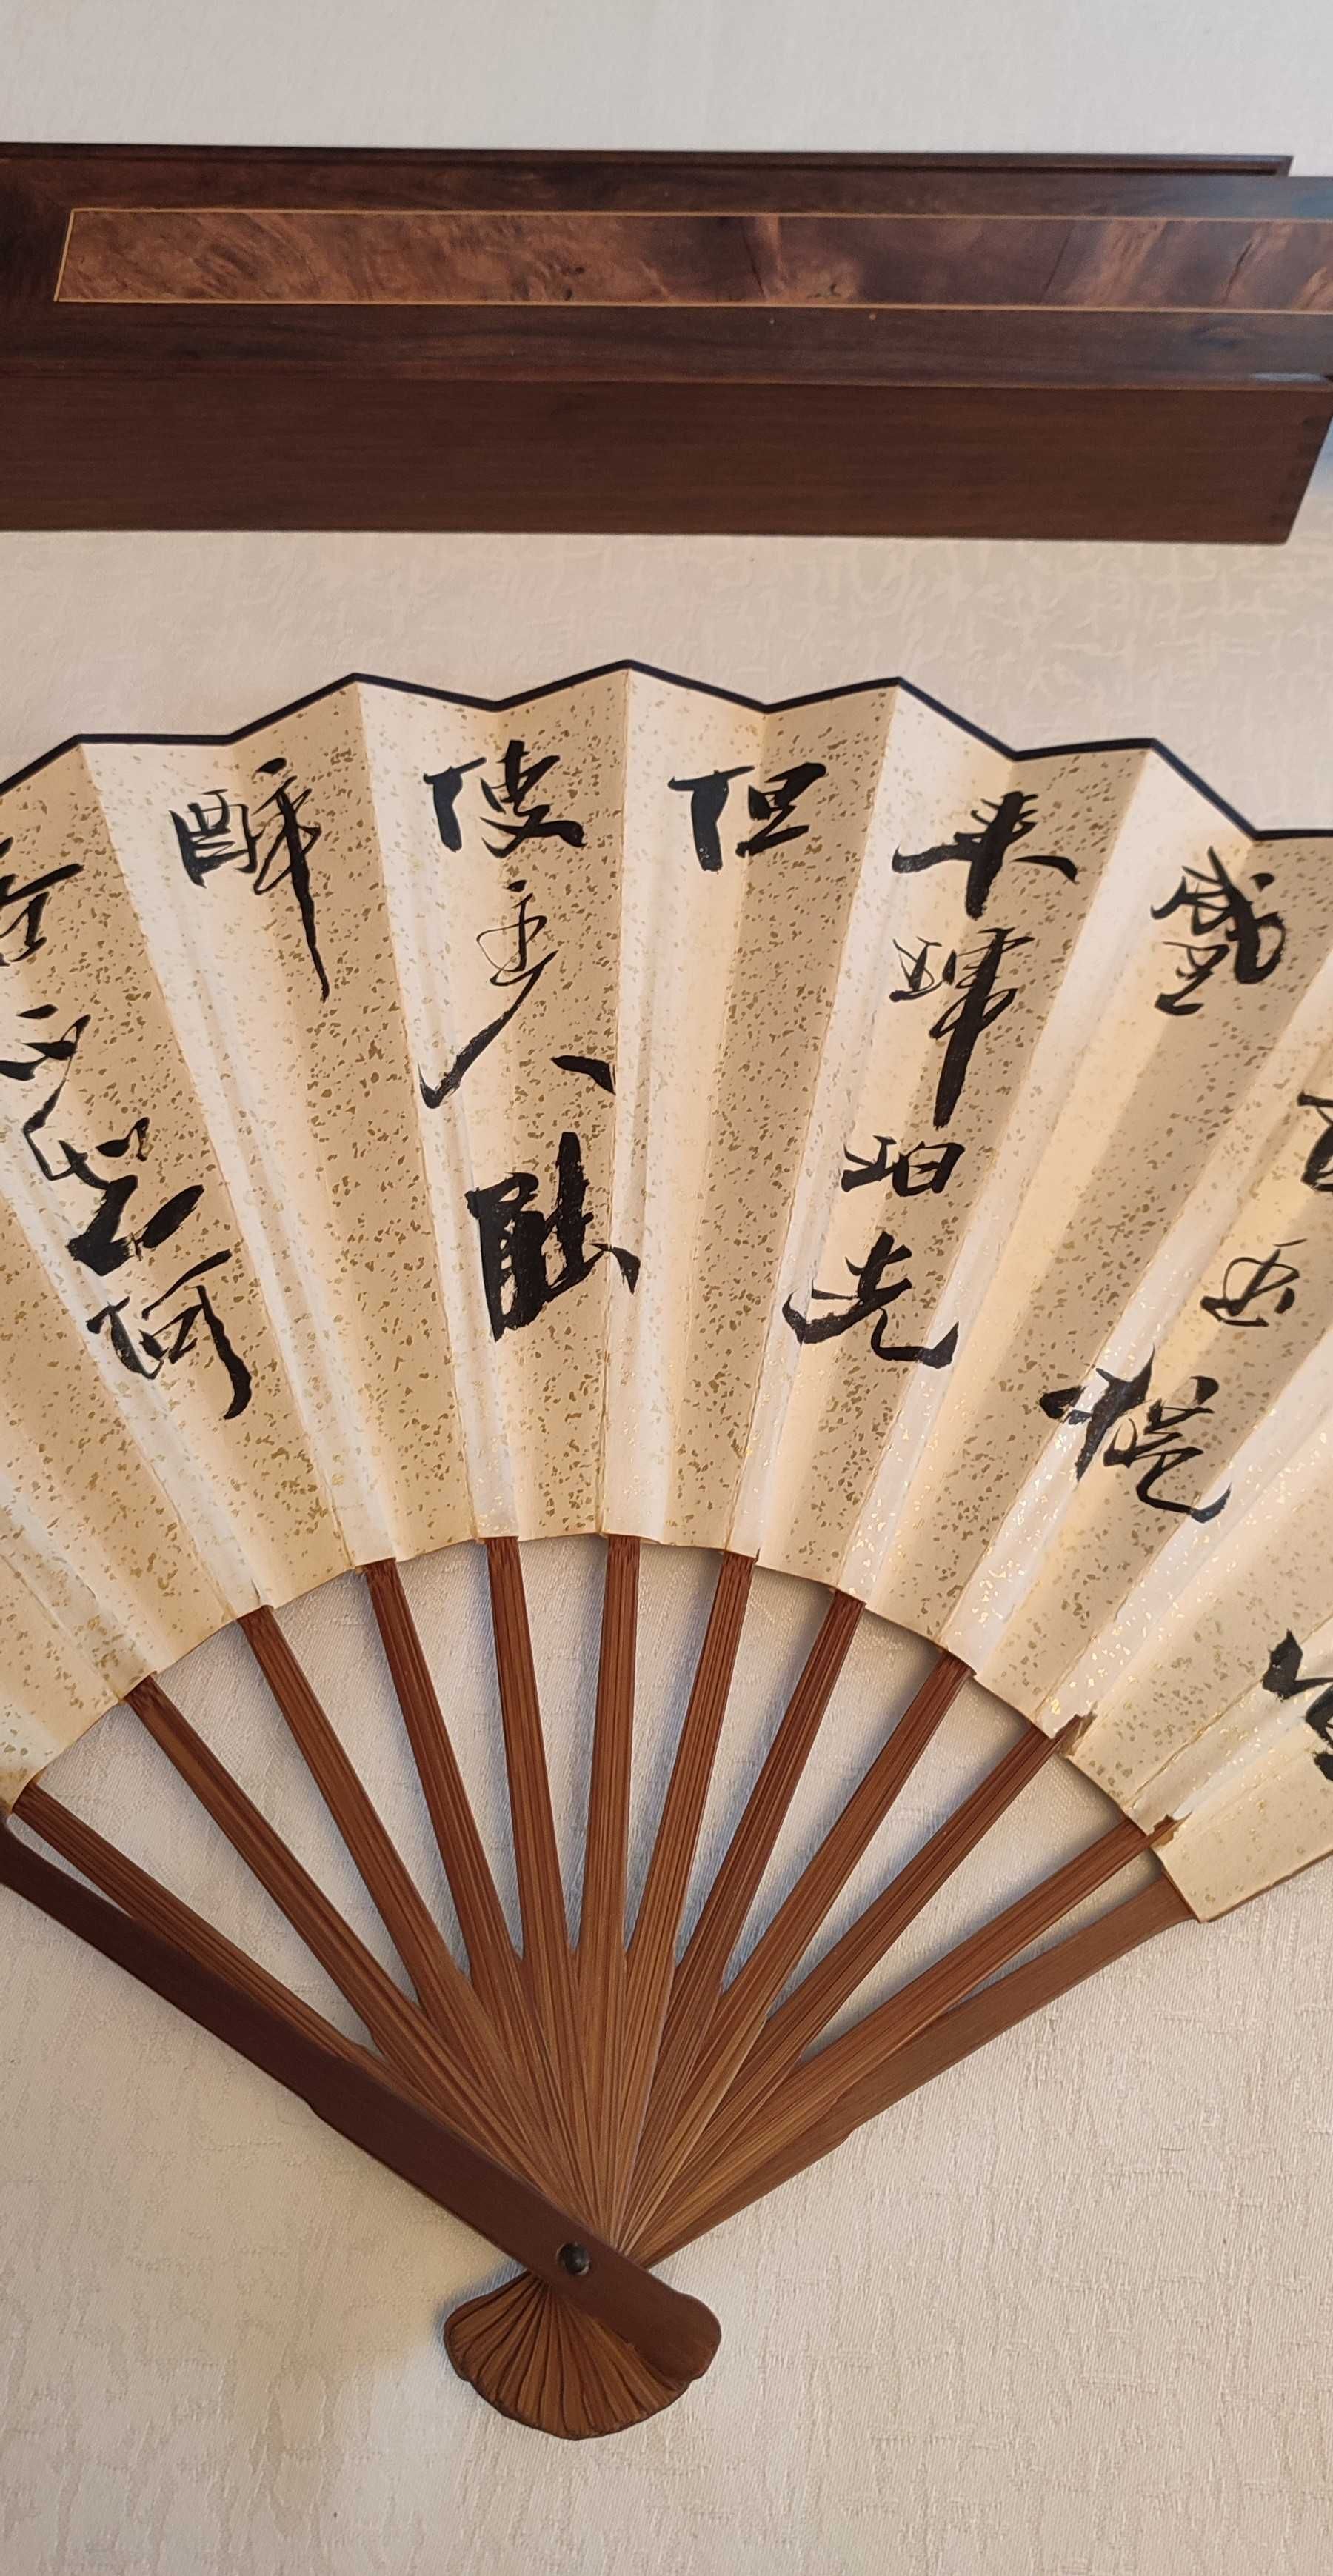 玉椀
盛
来琥珀光
但
使主人能
醉
不知何